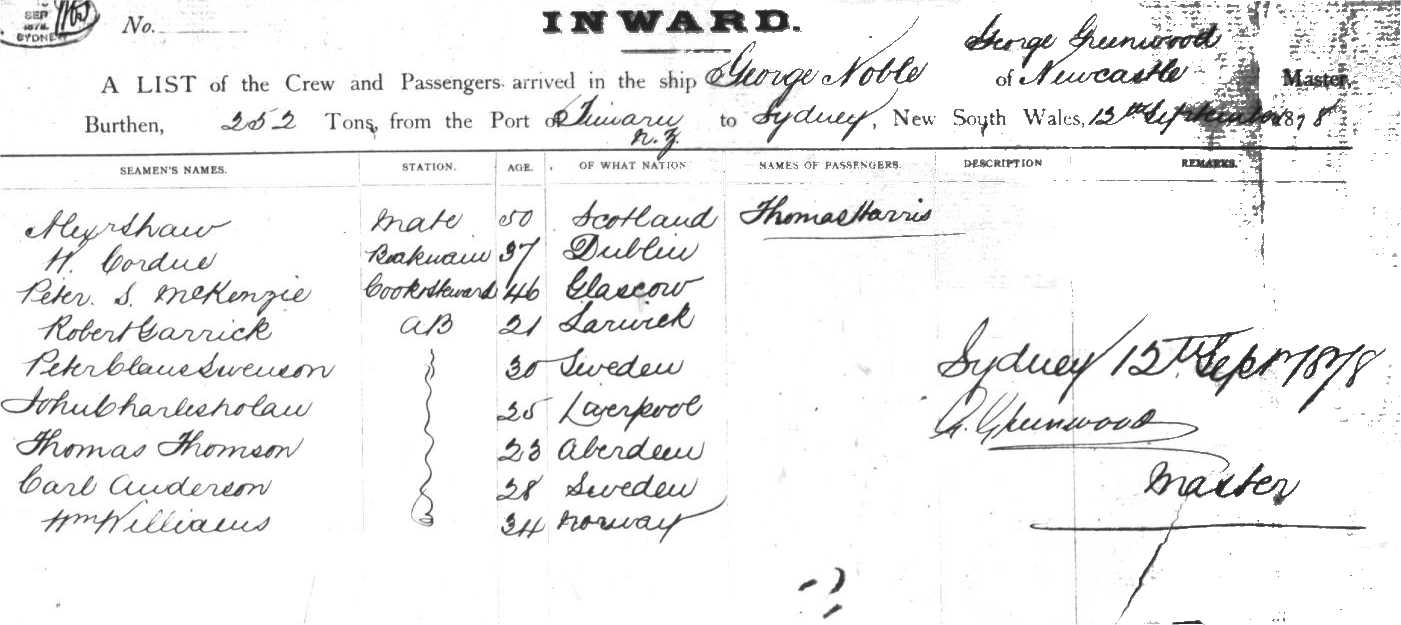 SEP
1878
SYDNEY
No.
INWARD.
George Greenwood
A LIST of the Crew and Passengers arrived in the ship George Noble of Newcastle Master,
Burthen, 252 Tons, from the Port of Timaru to Sydney, New South Wales, 12th September 1878
N.Z.
SEAMEN'S NAMES. STATION. AGE. OF WHAT NATION NAMES OF PASSENGERS. DESCRIPTION REMARKS.
Alexr Shaw Mate 50 Scotland Thomas Harris
H. Cordue 37 Dublin
Peter. S. McKenzie Cook & Steward 46 Glascow
Robert Garrick AB 21 Larwick
Peter Claus Swenson 30 Sweden
John Charles Nolan 25 Laverpool
Thomas Thomson 23 Aberdeen
Carl Anderson 28 Sweden
Wm Williams 34 Norway
Sydney 12th Sept 1878
G. Greenwood
Master